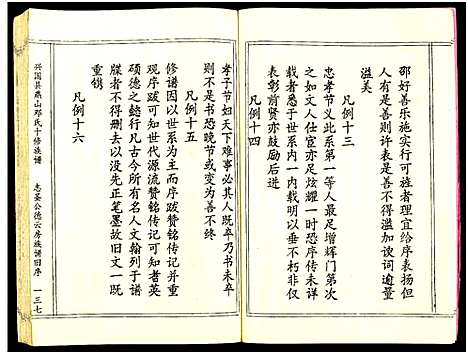 邵好善乐施实行可旌者理宜给序表扬但
人有是善则许表是善不得滥加谀词逾量
溢美
凡例十三
忠孝节义此系第一等人最足增辉门第次
则如文人仕宦亦足炫耀一时恐序传未详
载者悉于世系内一一标明非惟
表彰前贤亦鼓励后进
凡例十四
孝子节妇天下难事必其人既卒乃书未卒
则不是书恐晚节或变为善不终
凡例十五
修谱因以世系为主而序跋赞铭传记可典
观序跋可知世代源流赞铭传记可知者英
硕德之懿行凡古今所有名人文翰例列于
牒者不得删去以没先正笔墨故旧文一既
重镌
凡例十六
兴国县燕山邓氏十修族谱
志圣公德云房族谱旧序
一三七